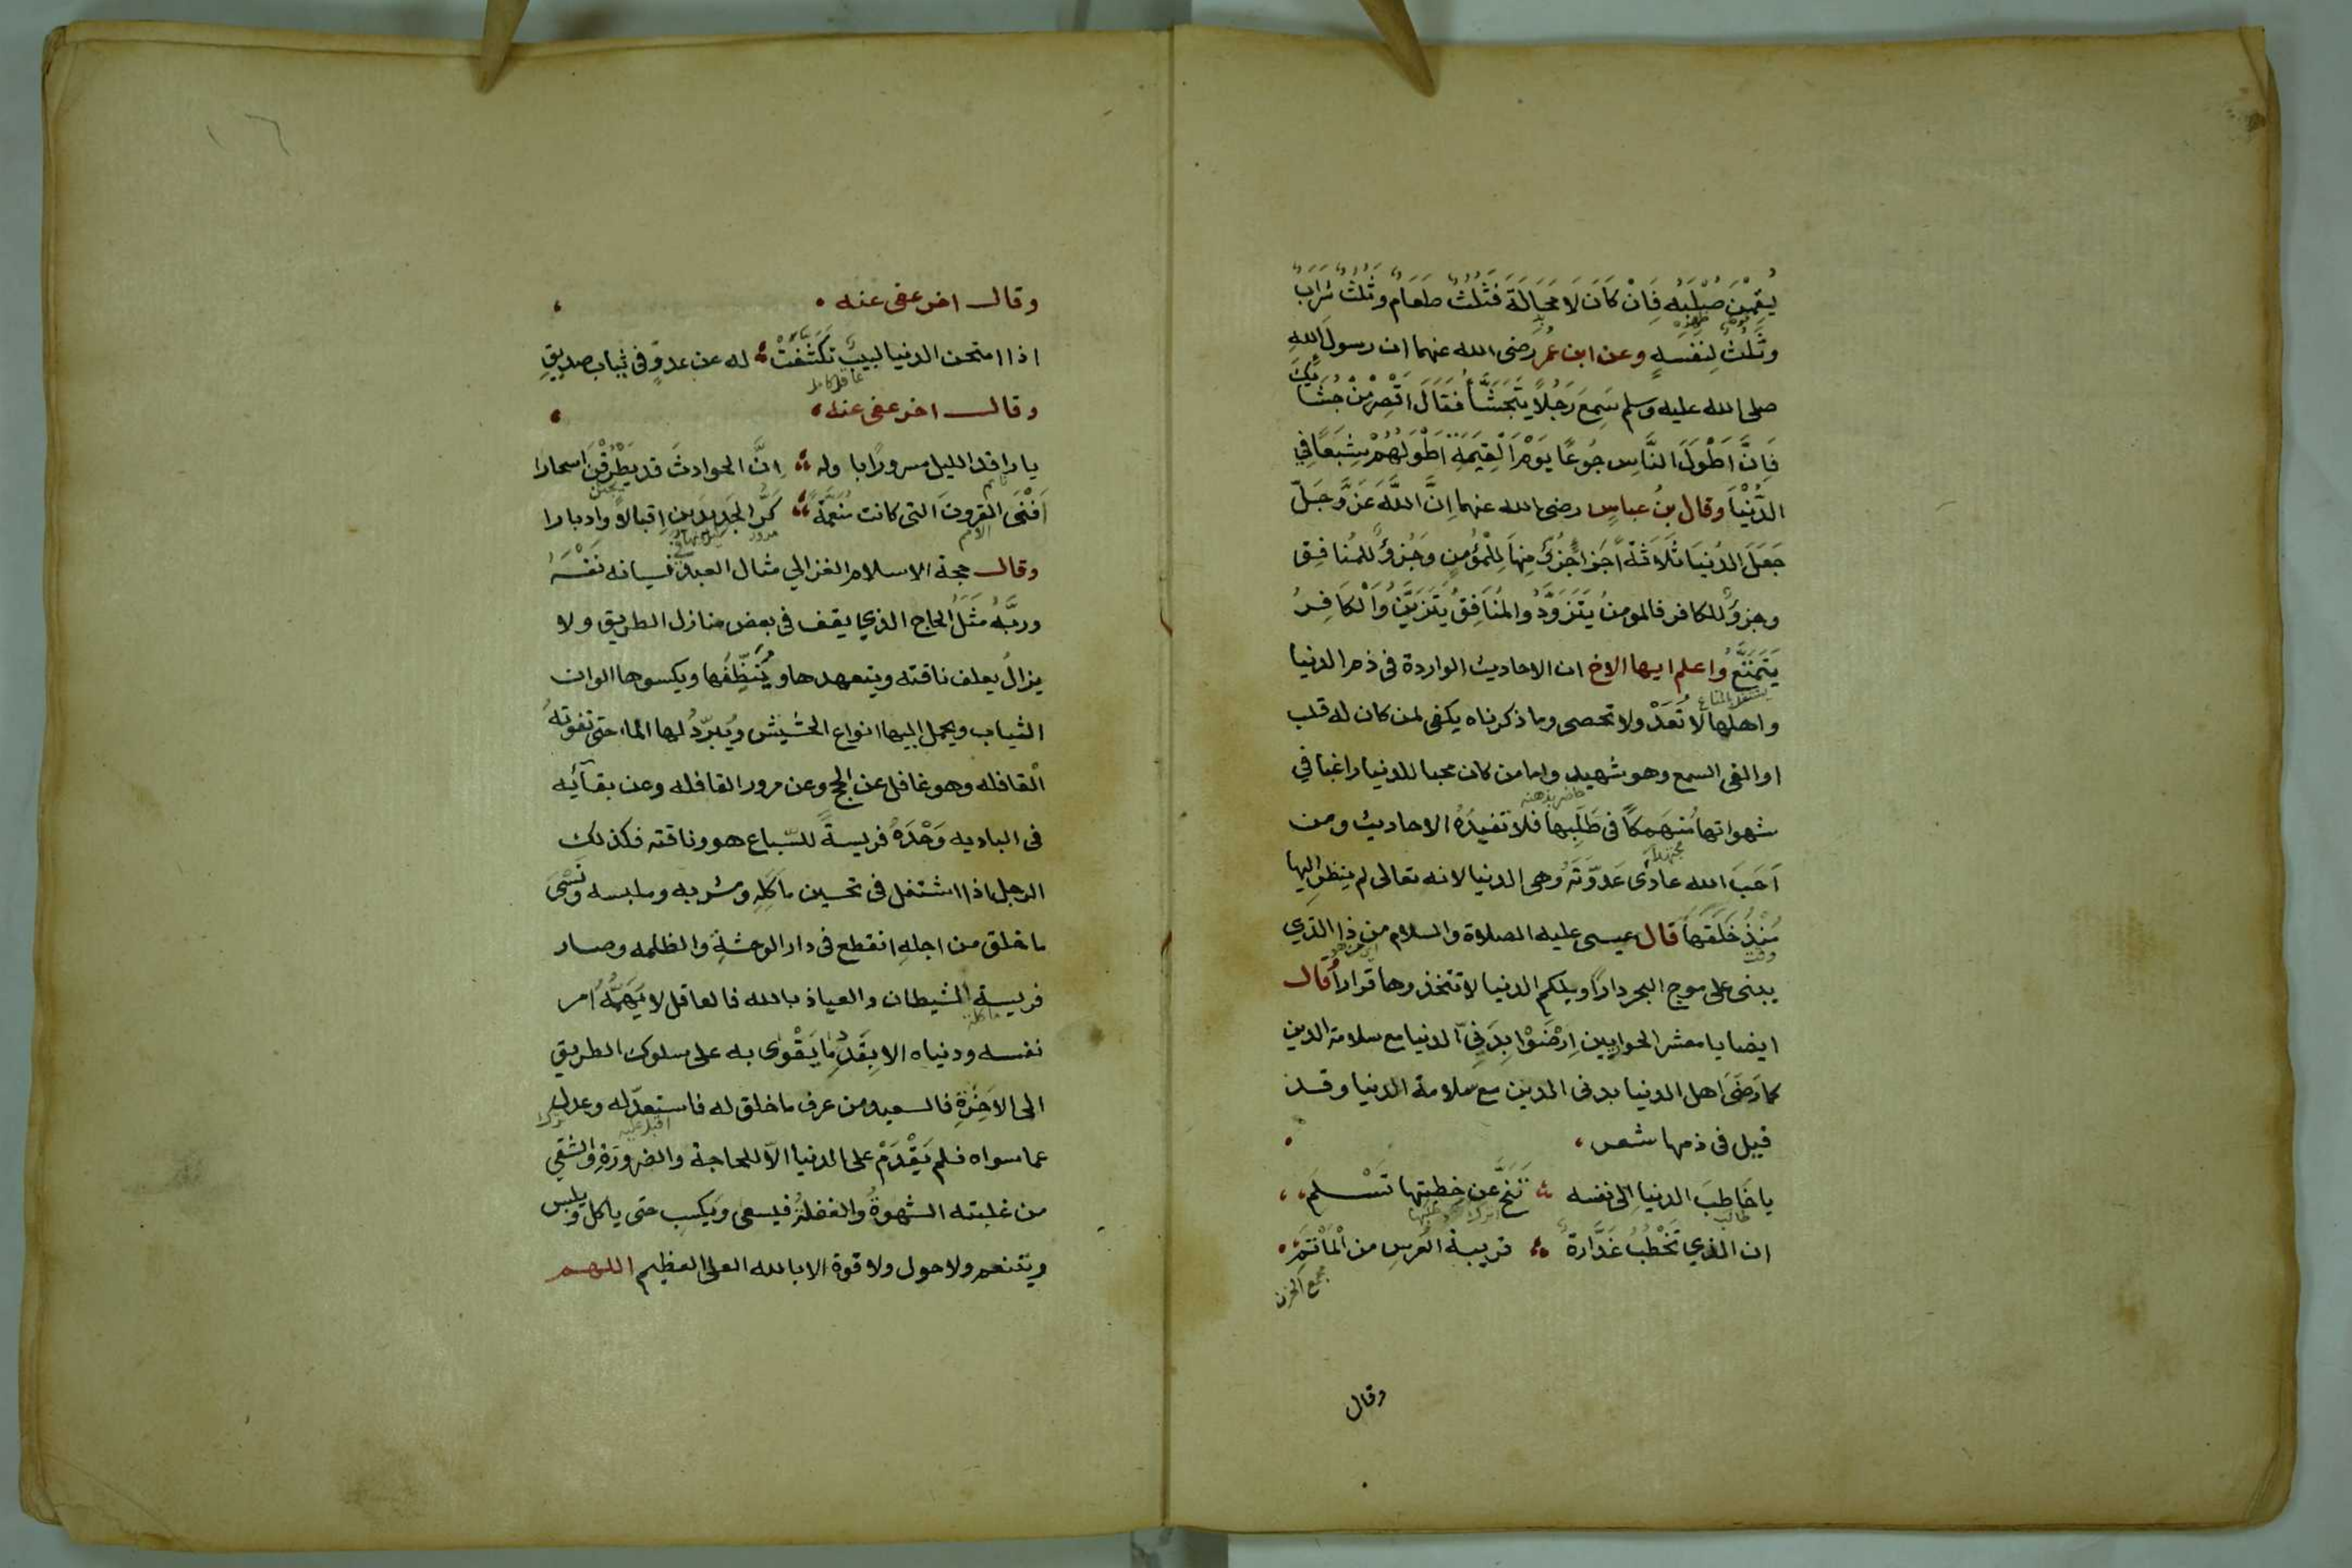 يُقِمْنَ صُلْبَه فَاِنْ كَانَ لَا مَحَالَةَ فَثُلُثٌ طَعَامٌ وثُلُثٌ شَرَابٌ
وثُلُثٌ لِنفسهِ وعن ابن عمر رضى الله عنهما ان رسول الله
صلى الله عليه وسلم سَمِعَ رَجُلًا يَتَجَشَّأُ فَقَالَ اَقْصِرْ مِنْ جُشَائِكَ
فَاِنَّ اَطْوَلَ النَّاسِ جُوعًا يَوْمَ الْقِيَمَةِ اَطْوَلُهُمْ شِبَعًا فِي
الدُّنْيَا وقال بنُ عباسٍ رضى الله عنهما اِنَّ اللَّهَ عَزَّ وَجَلَّ
جَعَلَ الدُنيَا ثَلَاثَةَ اَجزا جُزءٌ مِنهَا لِلْمُؤمنِ وَجُزءٌ للمُنافِق
وجزءٌ للكافر فالمومنُ يَتَزَوَّدُ والمُنَافِقُ يَتَزَيَّنُ وَالْكَافِرُ
يَتَمَتَّعُ واعلم ايها الاخ ان الاحاديث الواردة فى ذم الدنيا
يشتغل بالمتاع
واهلها لا تُعَدْ ولا تحصى وما ذكرناه يكفى لمن كان له قلب
او القى السمع وهو شهيد واما من كان محبا للدنيا راغبا في
حاضر بذهنه
شهواتها مُنهَمِكًا فى طَلَبِها فلا تفيدُهُ الاحاديث ومن
اَحَبَ الله عادَى عَدوَّتَهُ وهى الدنيا لانه تعالى لم ينظر اليها
مُنْذُ خَلَقَهَا قال عيسى عليه الصلاة والسلام من ذا الذي
وقت
يبنى على موج البحر دارًا ويلكم الدنيا لا تتخذوها قرارًا قال
ايضا يا معشر الحواريين اِرْضَوْا بِدَنِيّ الدنيا مع سلامة الدين
كما رَضَى اهل الدنيا بدنى الدين مع سلامة الدنيا وقد
قيل فى ذمها شعر
يا خَاطِبَ الدنيا الى نفسه تَنَحَّ عَن خِطبتها تَسْلَم
طالب
ان الذي تَخْطُبُ غَدَّارةٌ قريبة العُرسِ من الْمَأْتَمِ
مجمع الحزن
وقال
وقال اخر عفى عنه
اذا امتحن الدنيا لبيبٌ تكَشَّفَتْ له عن عدوٍّ فى ثياب صديقِ
عاقل كامل
وقال اخر عفى عنه
يا راقد الليل مسرورًا باوله اِنَّ الحوادثَ قد يَطْرُقْنَ اسحارا
نايم
اَفْنَى القرونَ التى كانت مُنَعَّمَةً كَرُّ الجَدِيدَينِ اِقبالاً وادبارا
الامم
مرور
وقال حجة الاسلام الغزالي مثال العبد فى نسيانه نَفْسَهُ
وربَّهُ مَثَلُ الحاج الذي يقف فى بعض منازل الطريق ولا
يزالُ يعلف ناقته ويتعهدها ويُنَظِّفُها ويكسوها الوان
الثياب ويحمل اليها انواع الحشيش ويُبرّدُ لها الماء حتى تفوتهُ
القافله وهو غافل عن الحج وعن مرور القافله وعن بقآئِه
فى الباديه وَحْدَهُ فريسةً للسّباع هو وناقته فكذلك
الرجل اذا اشتغل فى تحسين مأكَلِهِ ومشربه وملبسه ونسى
ما خلق من اجلهِ انقطع فى دار الوحشةِ والظلمه وصار
فريسة الشيطان والعياذ بالله فالعاقل لا يَهمُّهُ امر
ماكلة
نفسه ودنياه الا بِقَدْرِ ما يَقْوَى به على سلوك الطريق
الى الاَخِرَةِ فالسعيد من عرف ما خلق له فاستعدّ له وعدل
اقبل عليه
ترك
عما سواه فلم يَقْدَمْ على الدنيا الاّ للحاجة والضرورَةِ والشقي
من غلبته الشهوةُ والغفلةُ فيسعى ويكسب حتى ياكل ويلبس
ويتنعم ولا حول ولا قوة الا بالله العلى العظيم اللهم